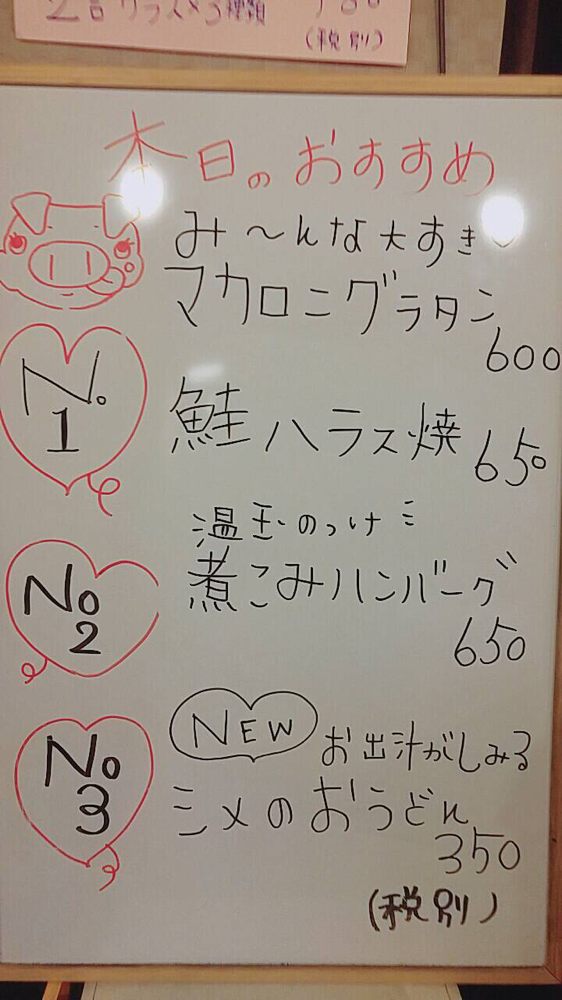 2合グラス×3種類 780
(税別)
本日のおすすめ
み〜んな大すき
マカロニグラタン
600
No.
1
鮭ハラス焼 650
温玉のっけ
No
2
煮こみハンバーグ
650
NEW お出汁がしみる
No
3
シメのおうどん
350
(税別)